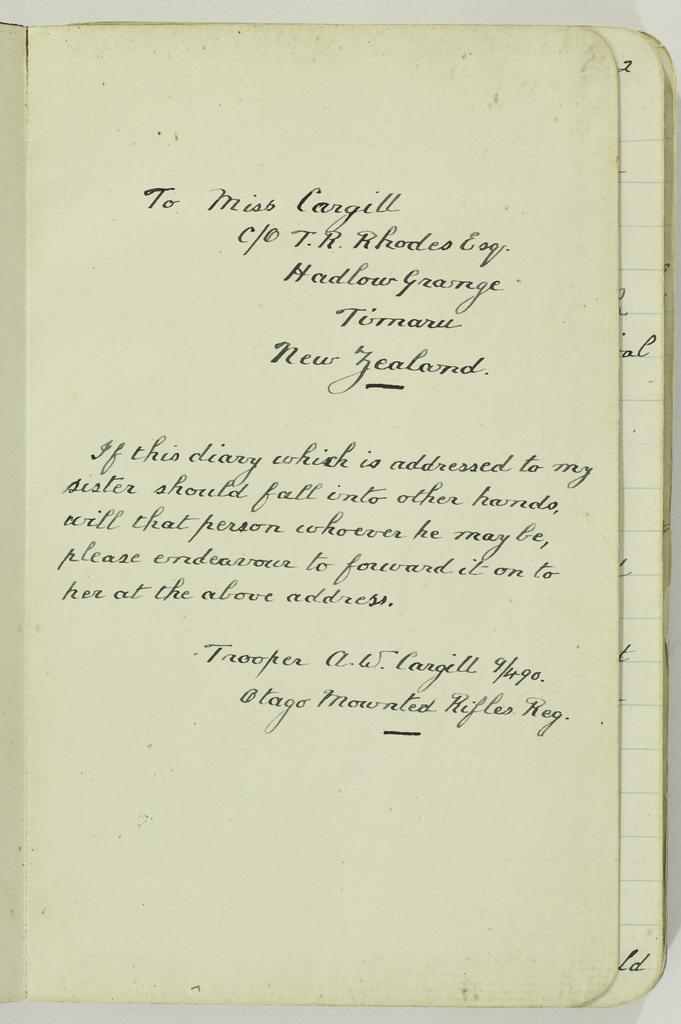 To Miss Cargill
C/O T. R. Rhodes Esq.
Hadlow Grange
Timaru
New Zealand.
If this diary which is addressed to my
sister should fall into other hands,
will that person whoever he may be,
please endeavour to forward it on to
her at the above address.
Trooper A. W. Cargill 9/490.
Otago Mounted Rifles Reg.
2
al
t
ld